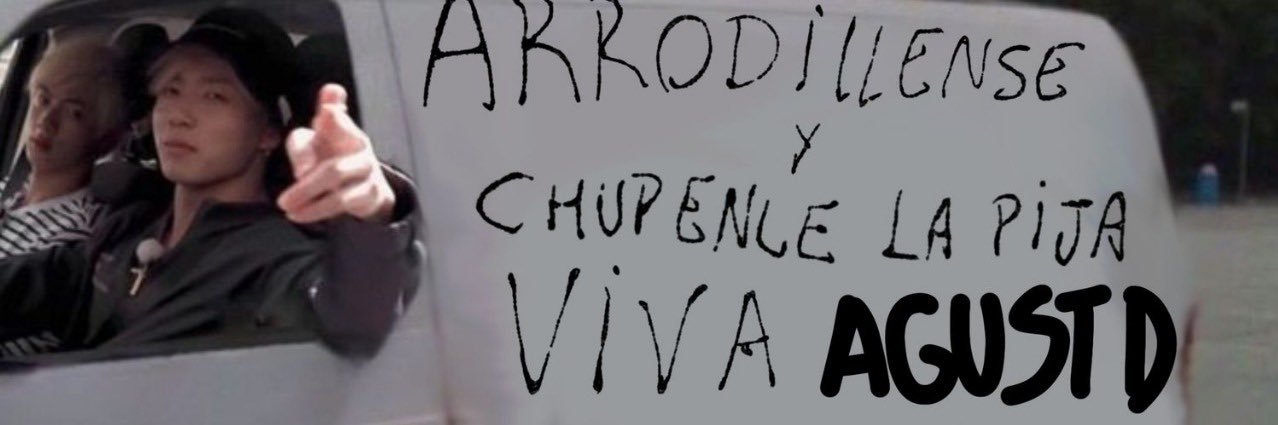 ARRODiLLENSE
Y
CHUPENLE LA PiJA
ViVA AGUSTD